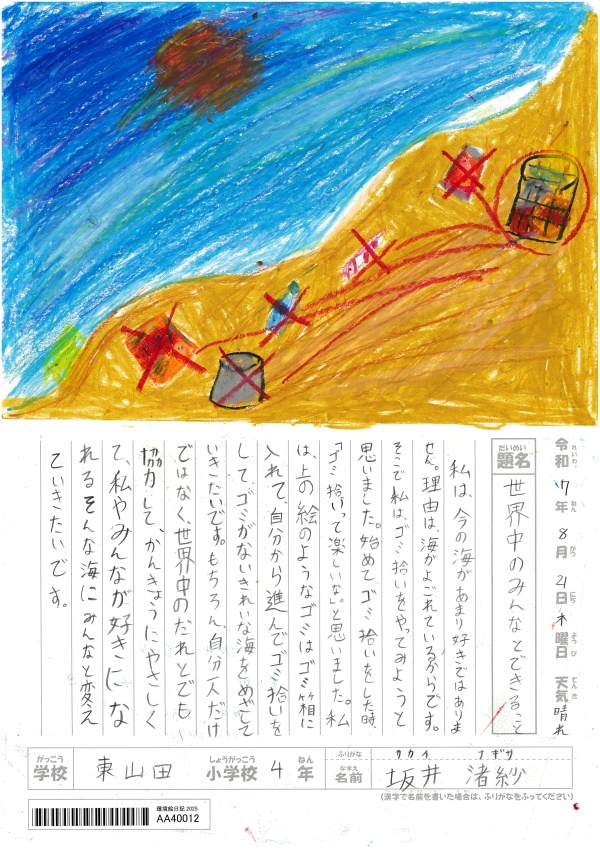 令和7年8月21日木曜日 天気晴れ
れいわ ねん がつ にち ようび てんき
だいめい
題名 世界中のみんなとできること
私は、今の海があまり好きではありま
せん。理由は、海がよごれているからです。
そこで私は、ゴミ拾いをやってみようと
思いました。始めてゴミ拾いをした時、
「ゴミ拾いって楽しいな。」と思いました。私
は、上の絵のようなゴミはゴミ箱に
入れて、自分から進んでゴミ拾いを
して、ゴミがないきれいな海をめざして
いきたいです。もちろん、自分一人だけ
ではなく、世界中のだれとでも
協力して、かんきょうにやさしく
て、私やみんなが好きにな
れるそんな海にみんなと変え
ていきたいです。
がっこう しょうがっこう ねん
学校 東山田 小学校 4年
ふりがな サカイ ナギサ
なまえ
名前 坂井 渚紗
(漢字で名前を書いた場合は、ふりがなをふってください)
環境絵日記2025
AA40012